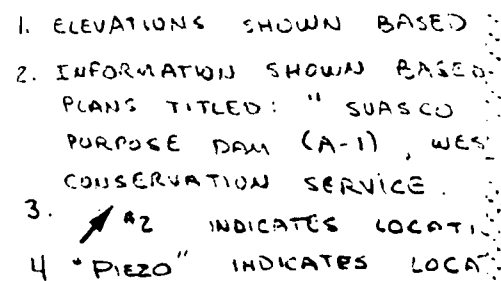 1. ELEVATIONS SHOWN BASED
2. INFORMATION SHOWN BASED
PLANS TITLED: " SUASCO
PURPOSE DAM (A-1), WES
CONSERVATION SERVICE.
3. #2 INDICATES LOCATI
4 "PIEZO" INDICATES LOCAT